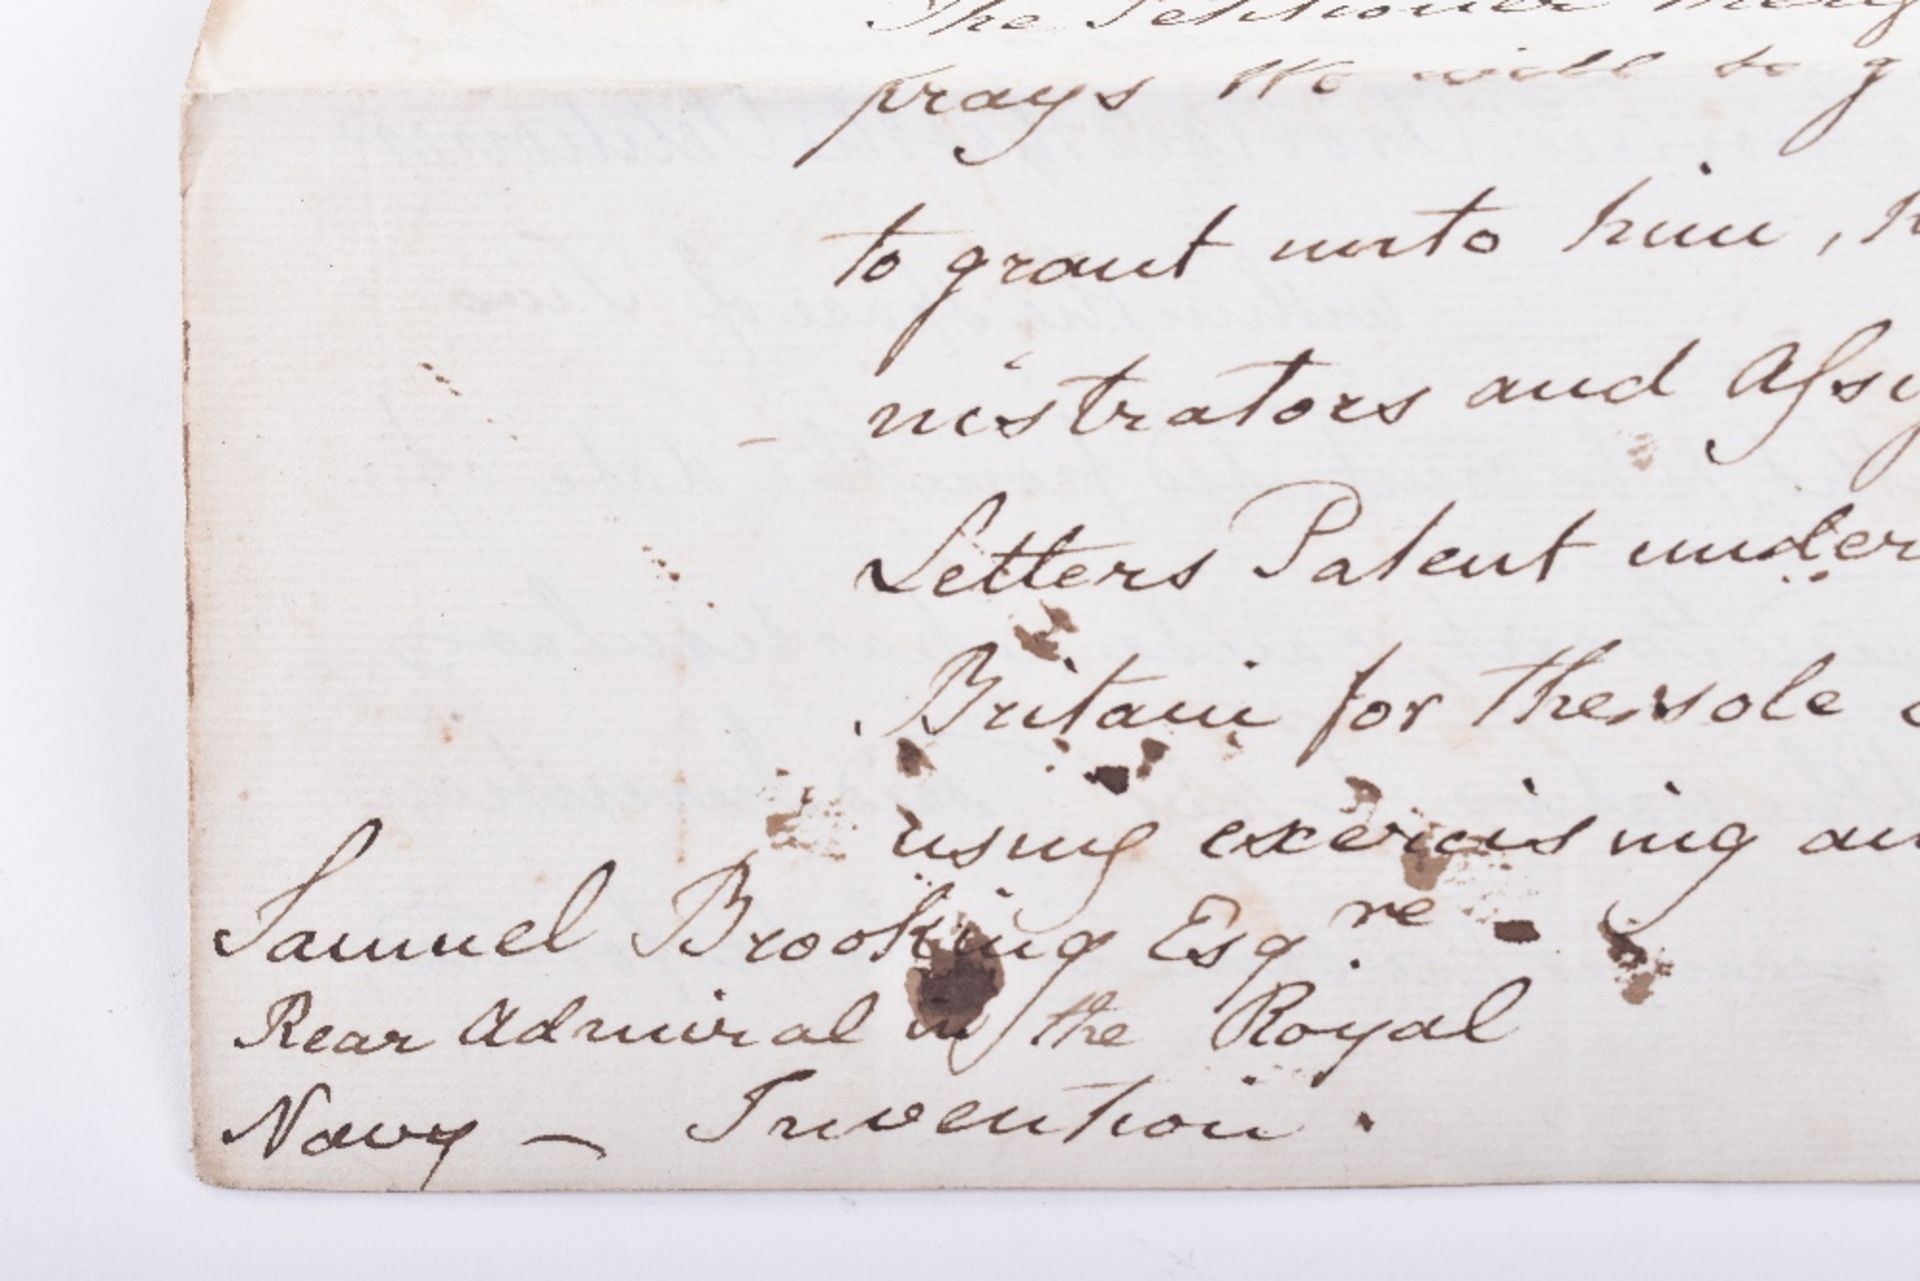 The Petitioner
prays We will
to grant unto him,
nistrators and
Letters Patent under
Britain for the sole
using exercising
Samuel Brooking Esqre
Rear Admiral in the Royal
Navy — Invention.